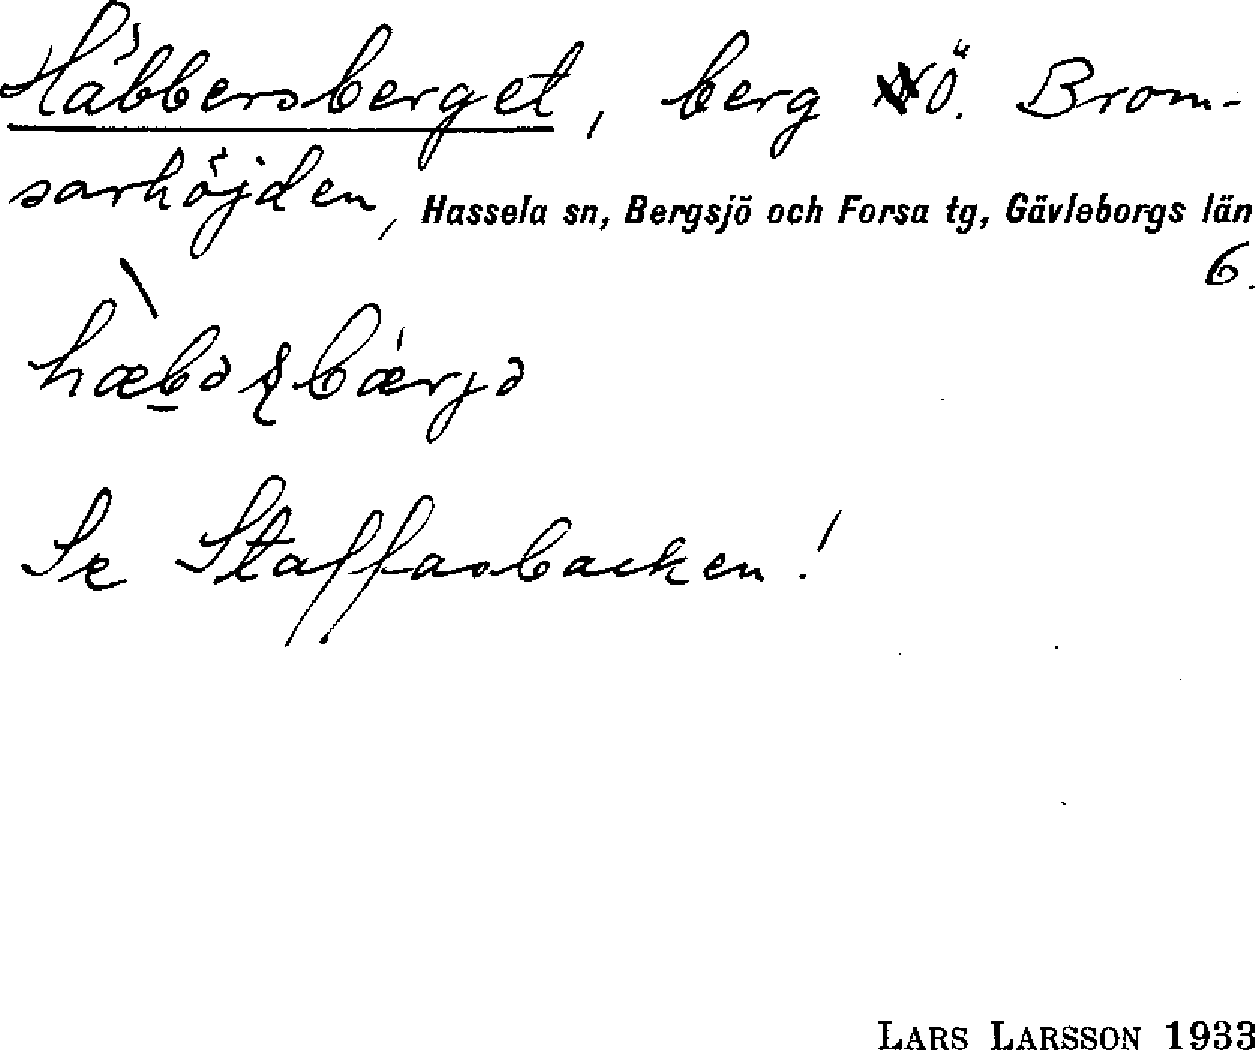 Häbbersberget, berg Ö. Brom-
sarhöjden, Hassela sn, Bergsjö och Forsa tg, Gävleborgs län
6.
Se Staffasbacken!
LARS LARSSON 1933